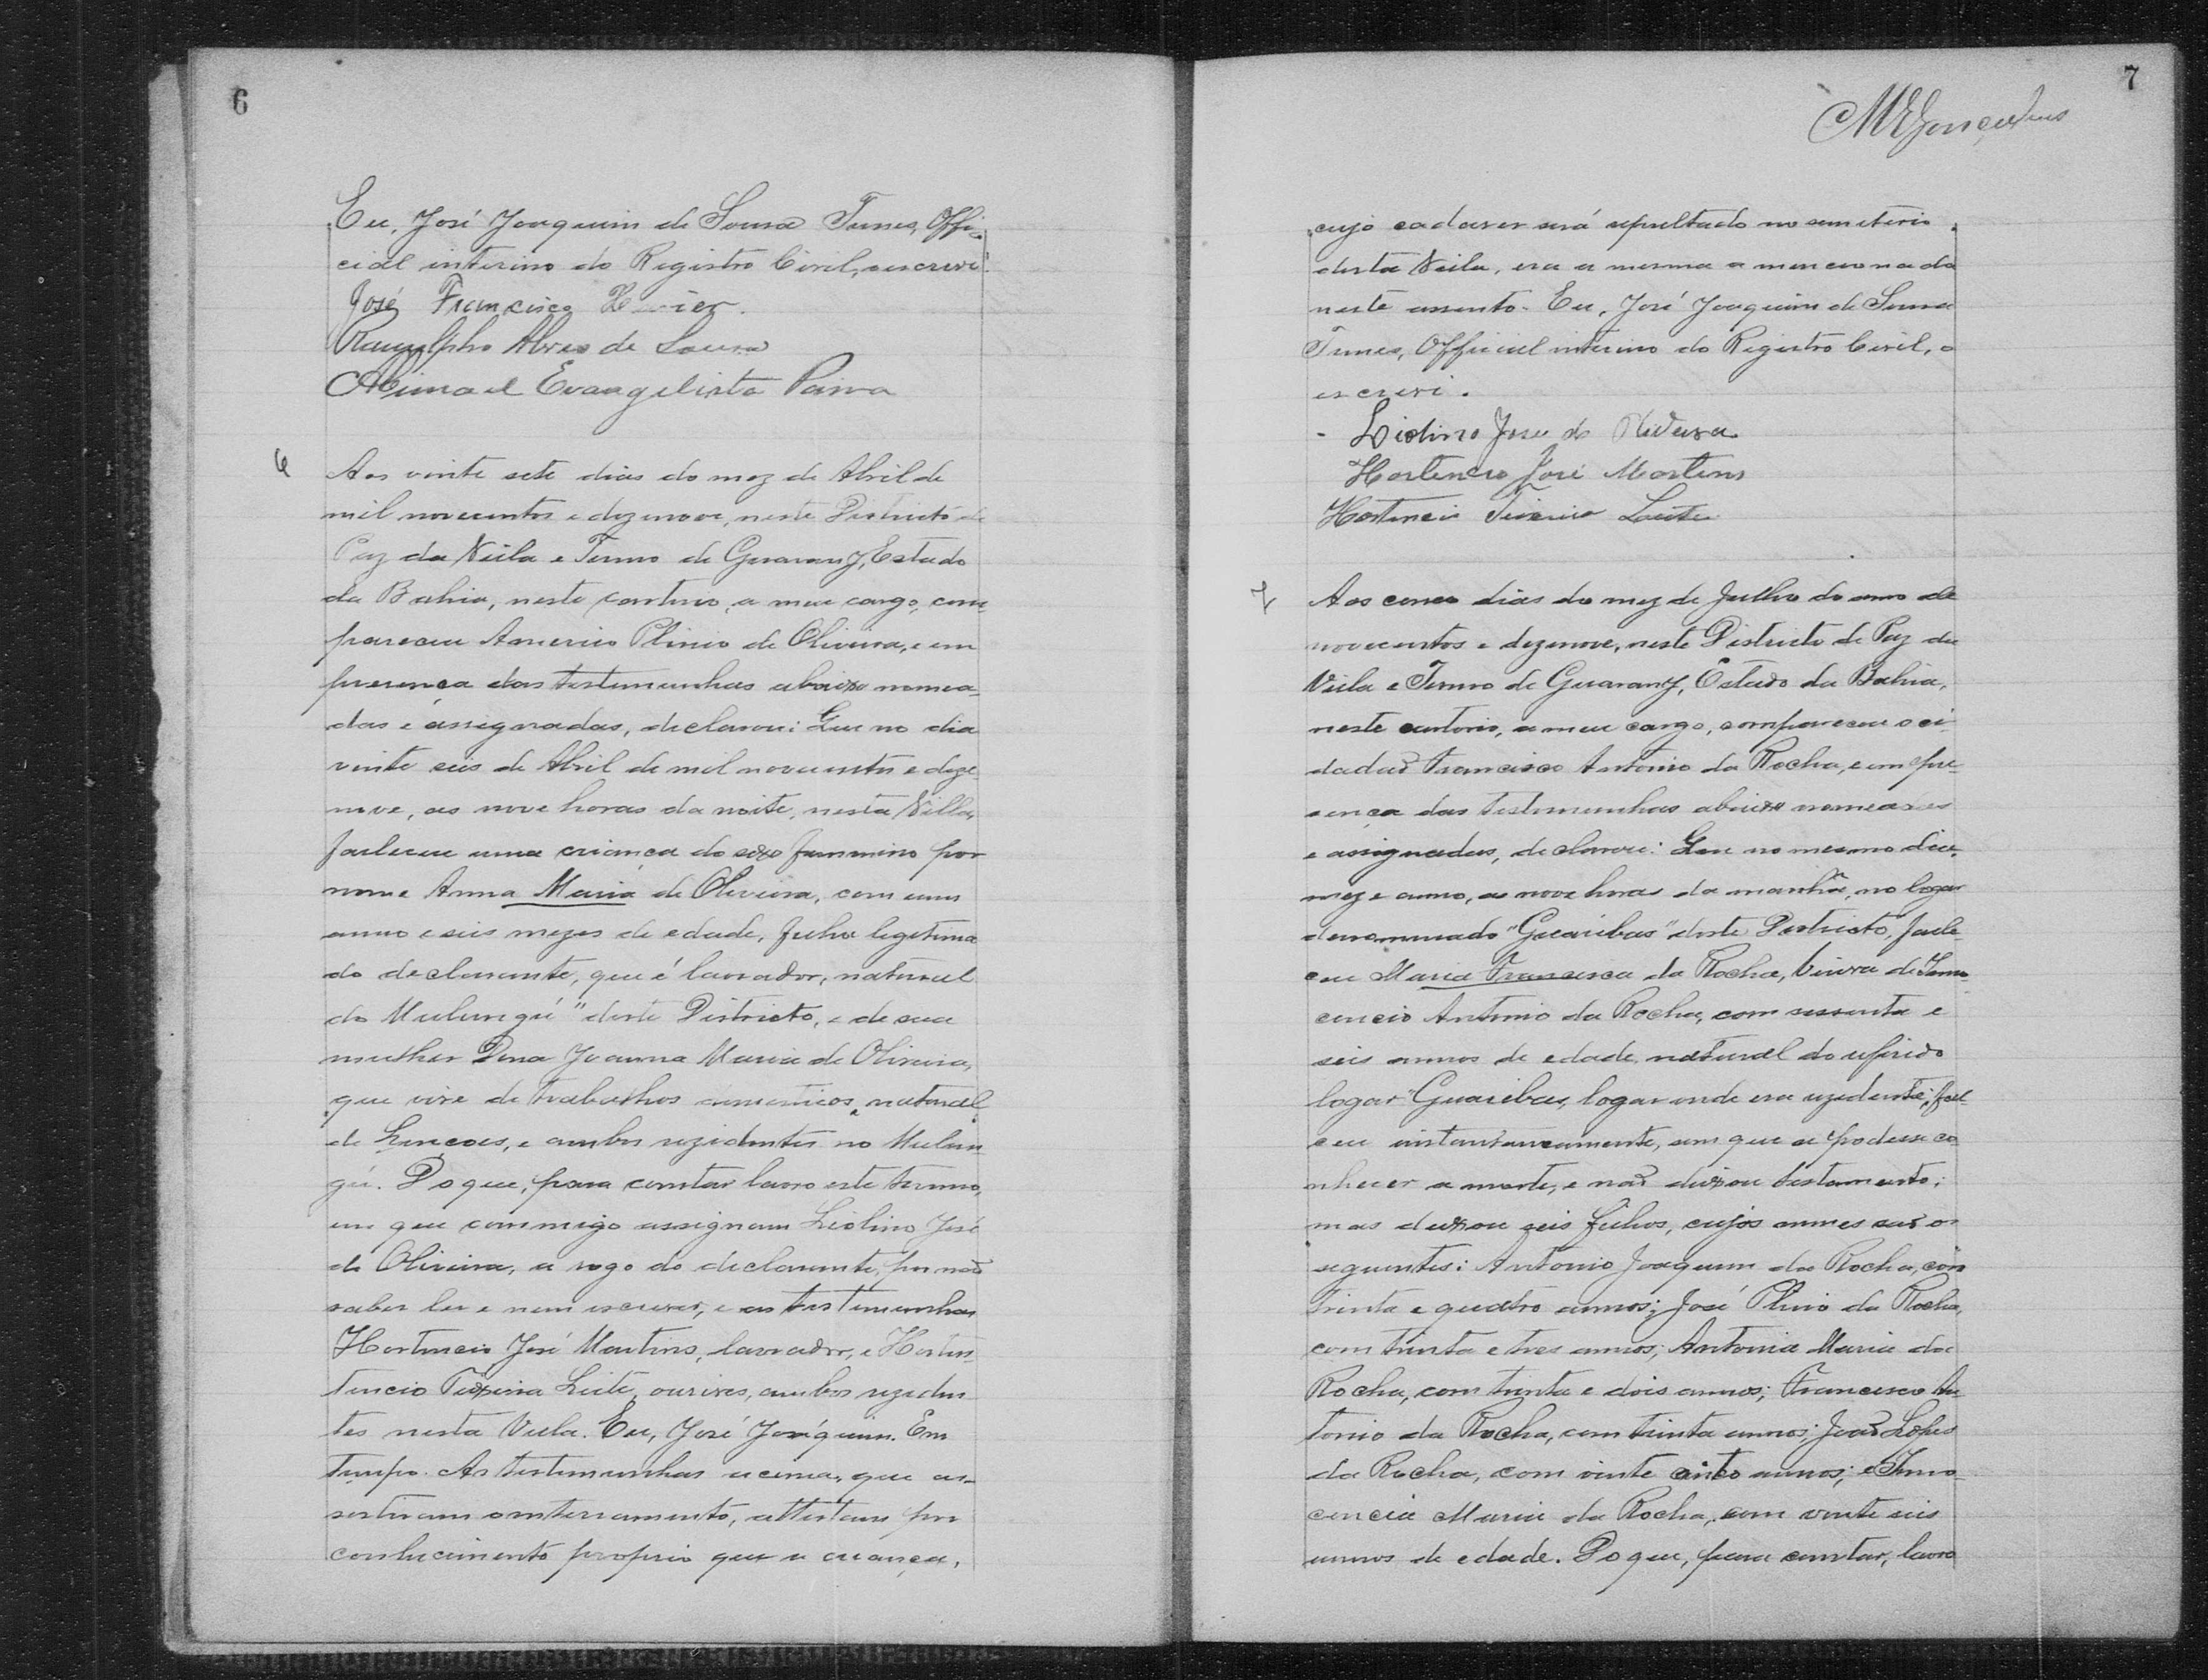 6
Eu, José Joaquim de Sousa Tunes, Offi-
cial interino do Registro Civil, o escrevi.
José Francisco
Alves de Sousa
Evangelista Paiva
6 Aos vinte sete dias do mez de Abril de
mil novecentos e dezenove, neste Districto de
Paz da Villa e Termo de Guarany, Estado
da Bahia, neste cartorio, a meu cargo, com-
pareceu Americo Plinio de Oliveira, e em
presença das testemunhas abaixo nomea-
das e assignadas, declarou: Que no dia
vinte seis de Abril de mil novecentos e deze-
nove, as nove horas da noite, nesta Villa,
falleceu uma criança do sexo femmino por
nome Anna Maria de Oliveira, com um
anno e seis mezes de edade, filha legitima
do declarante, que é lavrador, natural
do Mulungú" deste Districto, e de sua
mulher Dona Joanna Maria de Oliveira,
que vive de trabalhos domesticos, natural
de Lençoes, e ambos rezidentes no Mulun-
gú. Do que, para constar lavro este termo,
em que commigo assignam Liolino José
de Oliveira, a rogo do declarante, por não
saber ler e nem escrever, e as testemunhas
Hortencio José Martins, lavrador, e Horten-
tencio Teixeira Leite, ourives, ambos reziden-
tes nesta Villa. Eu, José Joaquim. Em
tempo. As testemunhas acima, que as-
sistiram o enterramento, attestam por
conhecimento proprio que a criança,
7
cujo cadaver será sepultado no semiterio
desta Villa, era a mesma a mencionada
neste assento. Eu, José Joaquim de Sousa
Tunes, Official interino do Registro Civil, o
escrevi.
Liolino José de Oliveira
Hortencio José Martins
Hortencio Teixeira Leite
7 Aos cinco dias do mez de Julho do anno de
novecentos e dezenove, neste Districto de Paz da
Villa e Termo de Guarany, Estado da Bahia,
neste cartorio, a meu cargo, compareceu o ci-
dadão Francisco Antonio da Rocha, e em pre-
sença das testemunhas abaixo nomeadas
e assignadas, declarou: Que no mesmo dia,
mez e anno, as nove horas da manhã, no logar
denominado "Guaribas" deste Districto, falle-
ceu Maria Francisca da Rocha, viuva de Inno-
cencio Antonio da Rocha, com sessenta e
seis annos de edade, natural do referido
logar "Guaribas, logar onde era rezidente; fal-
ceu instantaneamente, sem que se podesse co-
nhecer a morte, e não deixou testamento;
mas deixou seis filhos, cujos nomes são os
seguintes: Antonio Joaquim da Rocha, com
trinta e quatro annos; José Plinio da Rocha,
com trinta e tres annos; Antonia Maria da
Rocha, com trinta e dois annos; Francisco An-
tonio da Rocha, com trinta annos; João Lopes
da Rocha, com vinte oito annos; e Inno-
cencia Maria da Rocha, com vinte seis
annos de edade. Do que, para constar, lavro